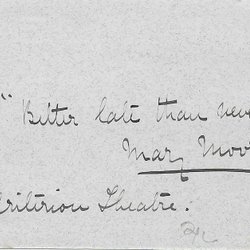 "Better late than nev
Mary Moo
Criterion Theatre.